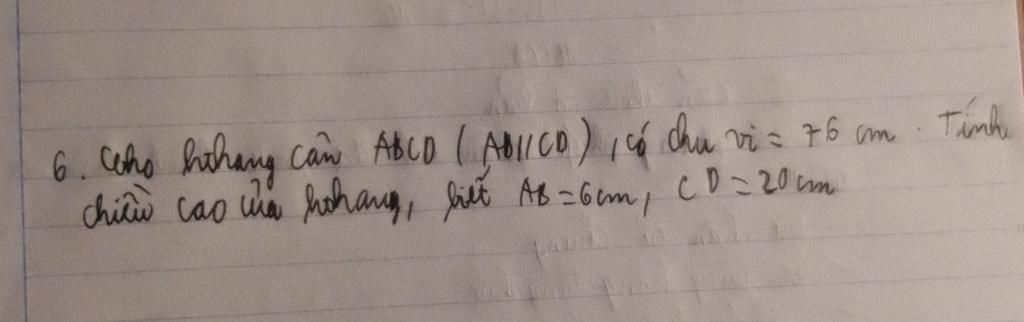 6. Cho hthang cân ABCD (AB//CD), có chu vi = 76 cm. Tính
chiều cao của hthang, biết AB = 6cm, CD = 20cm